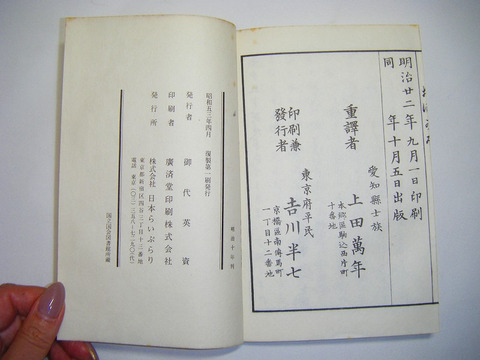 明治廿二年九月一日印刷
同 年十月五日出版
愛知縣士族
重譯者 上田萬年
本郷區駒込西片町
十番地
東京府平民
印刷兼
發行者 吉川半七
京橋區南傳馬町
一丁目十二番地
昭和五三年四月 復製第一刷発行
発行者 御代英資
印刷者 廣済堂印刷株式会社
発行所 株式会社 日本らいぶらり
国立国会図書館所蔵